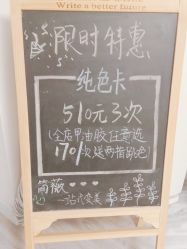 Write a better future
限时特惠
纯色卡
510元3次
(全店甲油胶任意选
170/次送两指跳色)
简薇
一站式变美